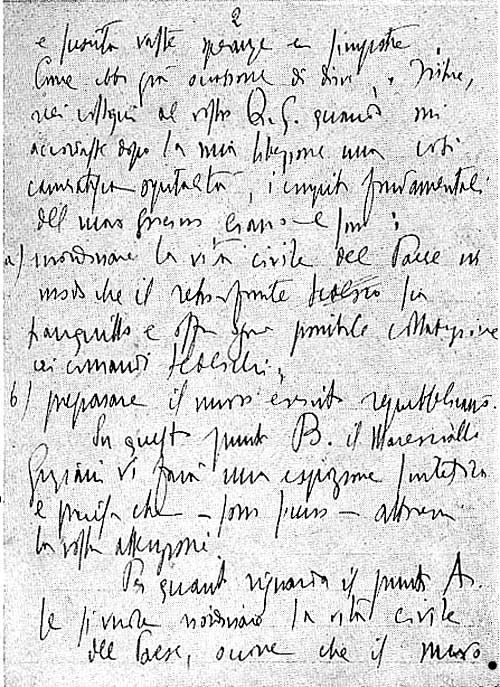 2
e suscita vaste speranze e simpatie.
Come ebbi già occasione di dirvi, Führer,
nei colloqui al vostro Q. G. quando mi
accordaste dopo la mia liberazione una così
cameratesca ospitalità, i compiti fondamentali
del nuovo Governo erano e sono:
a) riordinare la vita civile del Paese in
modo che il retrofronte tedesco sia
tranquillo e offra ogni possibile collaborazione
ai comandi tedeschi;
b) preparare il nuovo esercito repubblicano.
Su questo punto B. il Maresciallo
Graziani vi farà una esposizione sintetica
e precisa che – sono sicuro – attirerà
la vostra attenzione.
Per quanto riguarda il punto A.
se si vuole riordinare la vita civile
del Paese, occorre che il nuovo